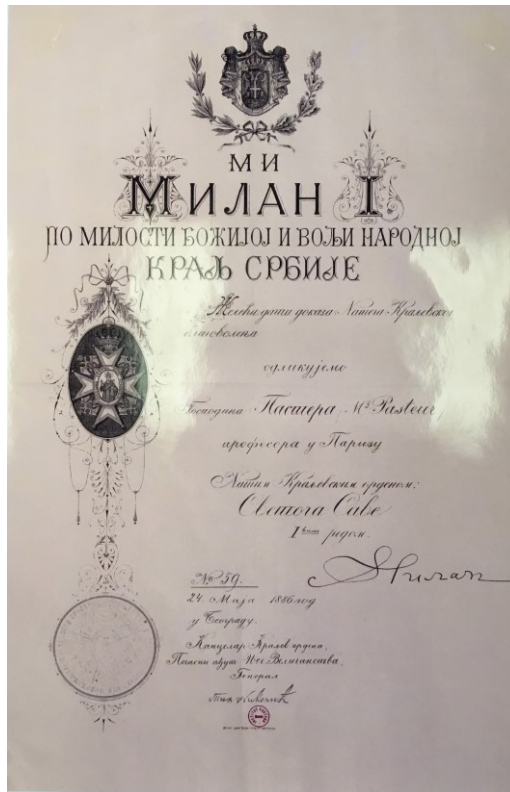 МИ
МИЛАН I.
ПО МИЛОСТИ БОЖИЈОЈ И ВОЉИ НАРОДНОЈ
КРАЉ СРБИЈЕ
Желећи дати доказа Нашега Краљевског
благоволења
одликујемо
Господина Пастера, Mr Pasteur
професора у Паризу
Нашим Краљевским орденом:
Светога Саве
I вим редом.
№ 59.
Милан
24. Маја 1886 год
у Београду.
Канцелар Краљев. ордена,
Почасни ађут. Његог Величанства,
Ђенерал